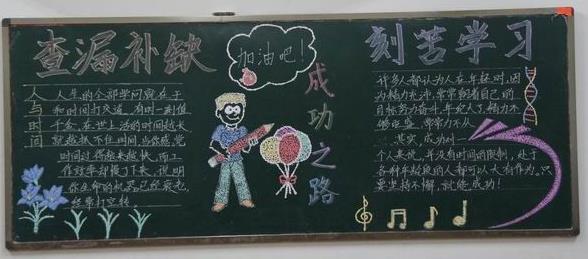 查漏补缺
人与时间
人生的全部学问就在于
和时间打交道，有时一刻值
千金，在世上活的时间越长
就越抓不住时间，当你感觉
时间过得越来越快，而工
作效率却慢了下来，说明
你生命的机器已经衰老，
经常打空转
加油吧！
成功之路
刻苦学习
许多人都认为人在年轻时，因
为精力充沛，常常朝着自己的
目标努力奋斗，年纪大了，精力不
够旺盛，常常力不从
其实，成功对一
个人来说，并没有时间的限制，处于
各种年龄段的人都可以大有作为，只
要坚持不懈，就能成功！